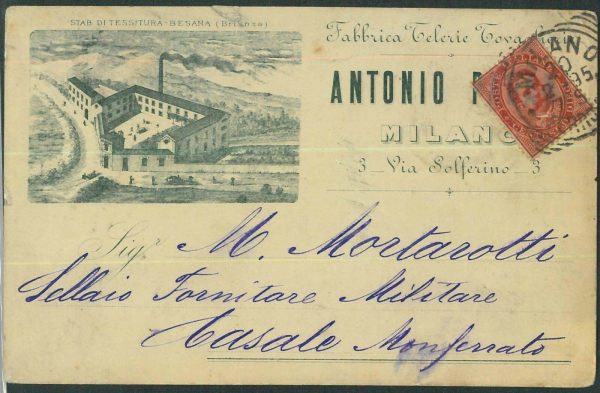 STAB DI TESSITURA-BESANA (Brianza)
Fabbrica Telerie
ANTONIO
MILANO
3 Via Solferino 3
MILANO
95
Sig.r M. Mortarotti
Sellaio Fornitore Militare
Casale Monferrato